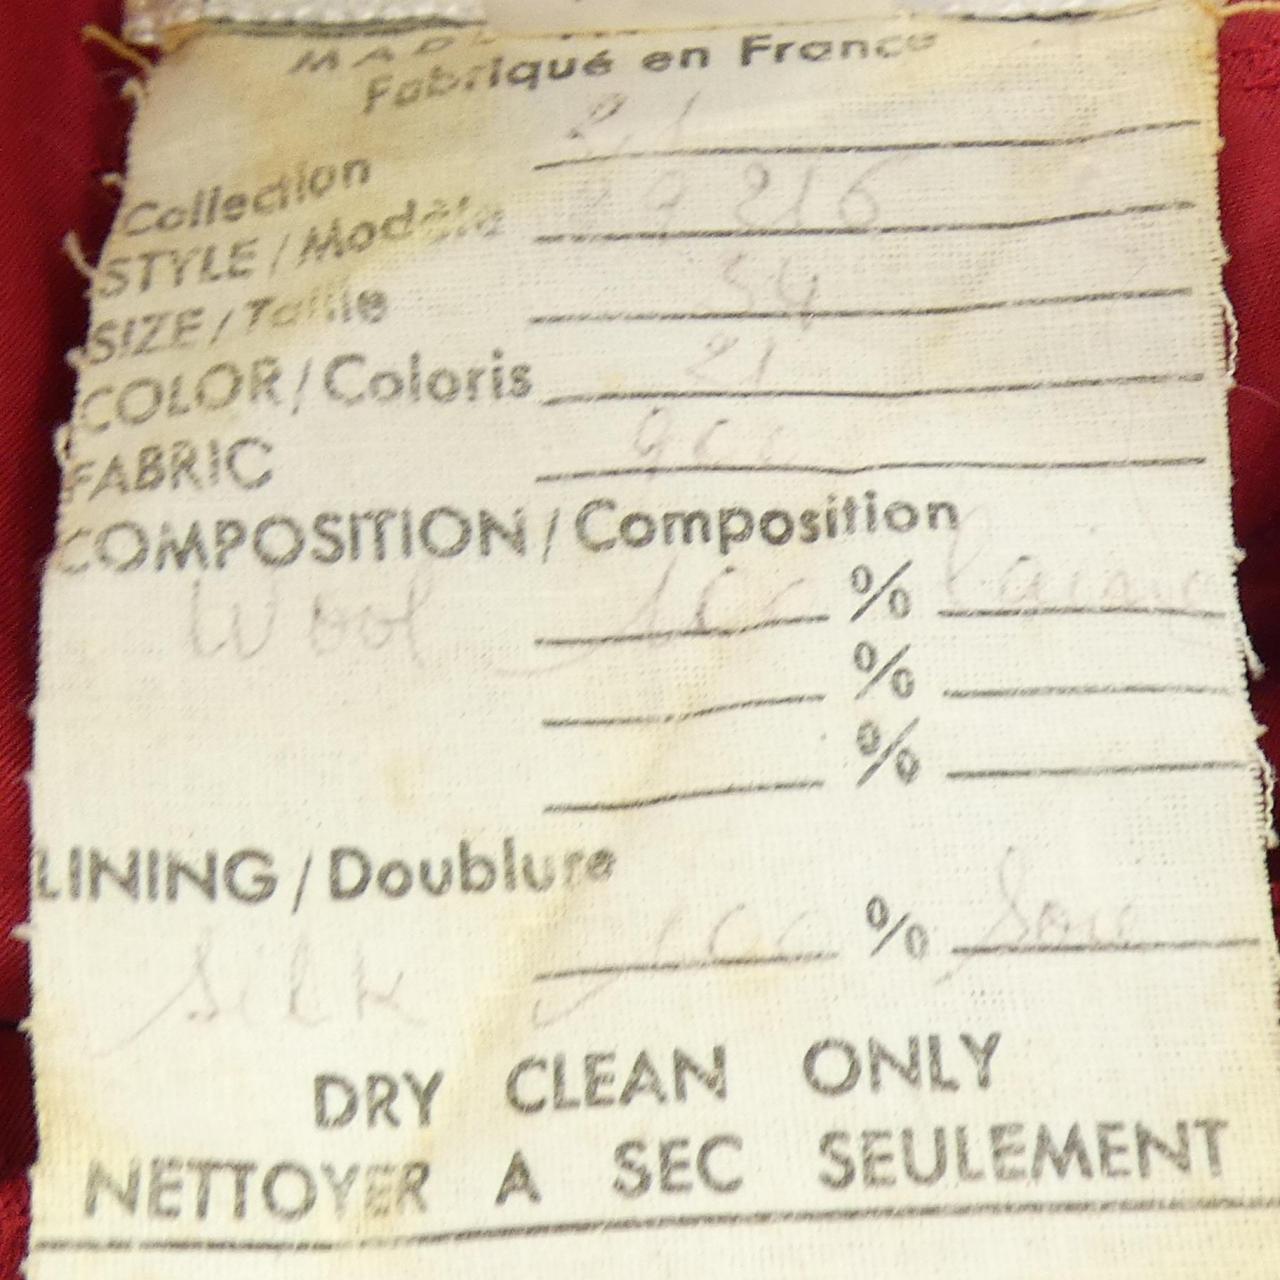 Fabriqué en France
Collection 21
STYLE / Modèle 9216
SIZE / Taille 34
COLOR / Coloris 21
FABRIC
COMPOSITION / Composition
Wool 100 % Laine
%
%
LINING / Doublure
Silk 100 % Soie
DRY CLEAN ONLY
NETTOYER A SEC SEULEMENT